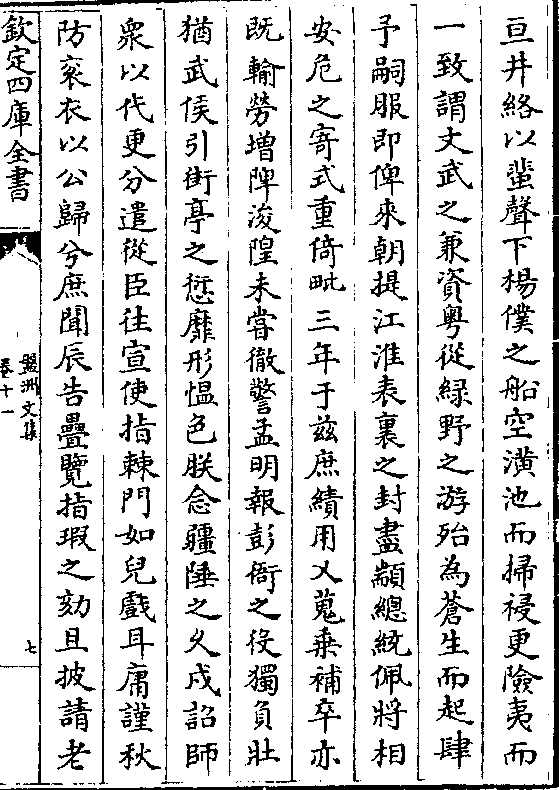 亘井絡以蜚聲下楊僕之船空潢池而掃祲更險夷而
一致謂文武之兼資粤從緑野之游殆為蒼生而起肆
予嗣服即俾來朝提江淮表裏之封盡顓總統佩將相
安危之寄式重倚毗三年于兹庶績用乂蒐乗補卒亦
既輸勞増陴浚隍未嘗徹警孟明報彭衙之役獨負壯
猶武侯引街亭之愆靡形愠色朕念疆陲之久戍詔師
衆以代更分遣從臣往宣使指棘門如兒戲耳庸謹秋
防衮衣以公歸兮庶聞辰告疊覽指瑕之劾且披請老
欽定四庫全書
盤洲文集
卷十一
七